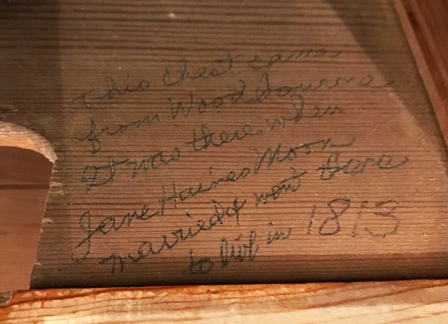 This chest came
from Woodbourne
It was there when
Jane Haines Moon
married & went
to live in 1813